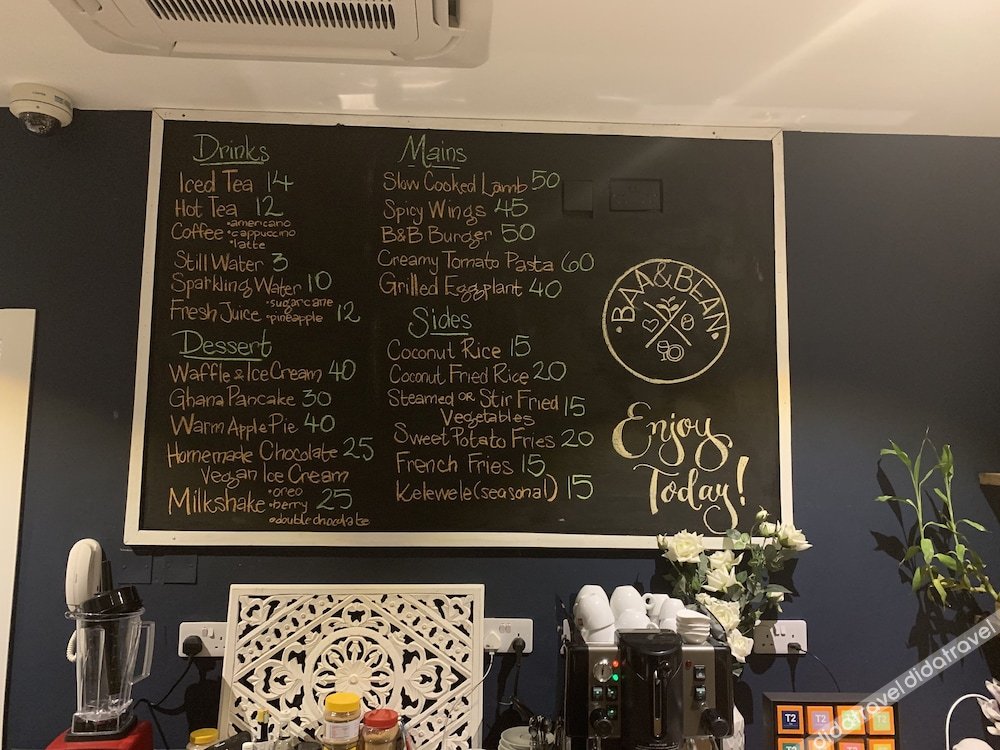 Drinks
Iced Tea 14
Hot Tea 12
Coffee •americano
•cappuccino
•latte
Still Water 3
Sparkling Water 10
Fresh Juice •sugarcane
•pineapple 12
Dessert
Waffle & Ice Cream 40
Ghana Pancake 30
Warm Apple Pie 40
Homemade Chocolate 25
Vegan Ice Cream
Milkshake •oreo
•berry 25
•double chocolate
Mains
Slow Cooked Lamb 50
Spicy Wings 45
B&B Burger 50
Creamy Tomato Pasta 60
Grilled Eggplant 40
Sides
Coconut Rice 15
Coconut Fried Rice 20
Steamed OR Stir Fried 15
Vegetables
Sweet Potato Fries 20
French Fries 15
Kelewele (seasonal) 15
•BAA&BEAN•
Enjoy
Today!
T2 T2 T2 T2
didatravel didatravel